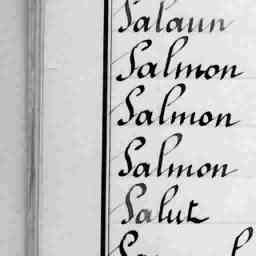 Salaun
Salmon
Salmon
Salmon
Salut